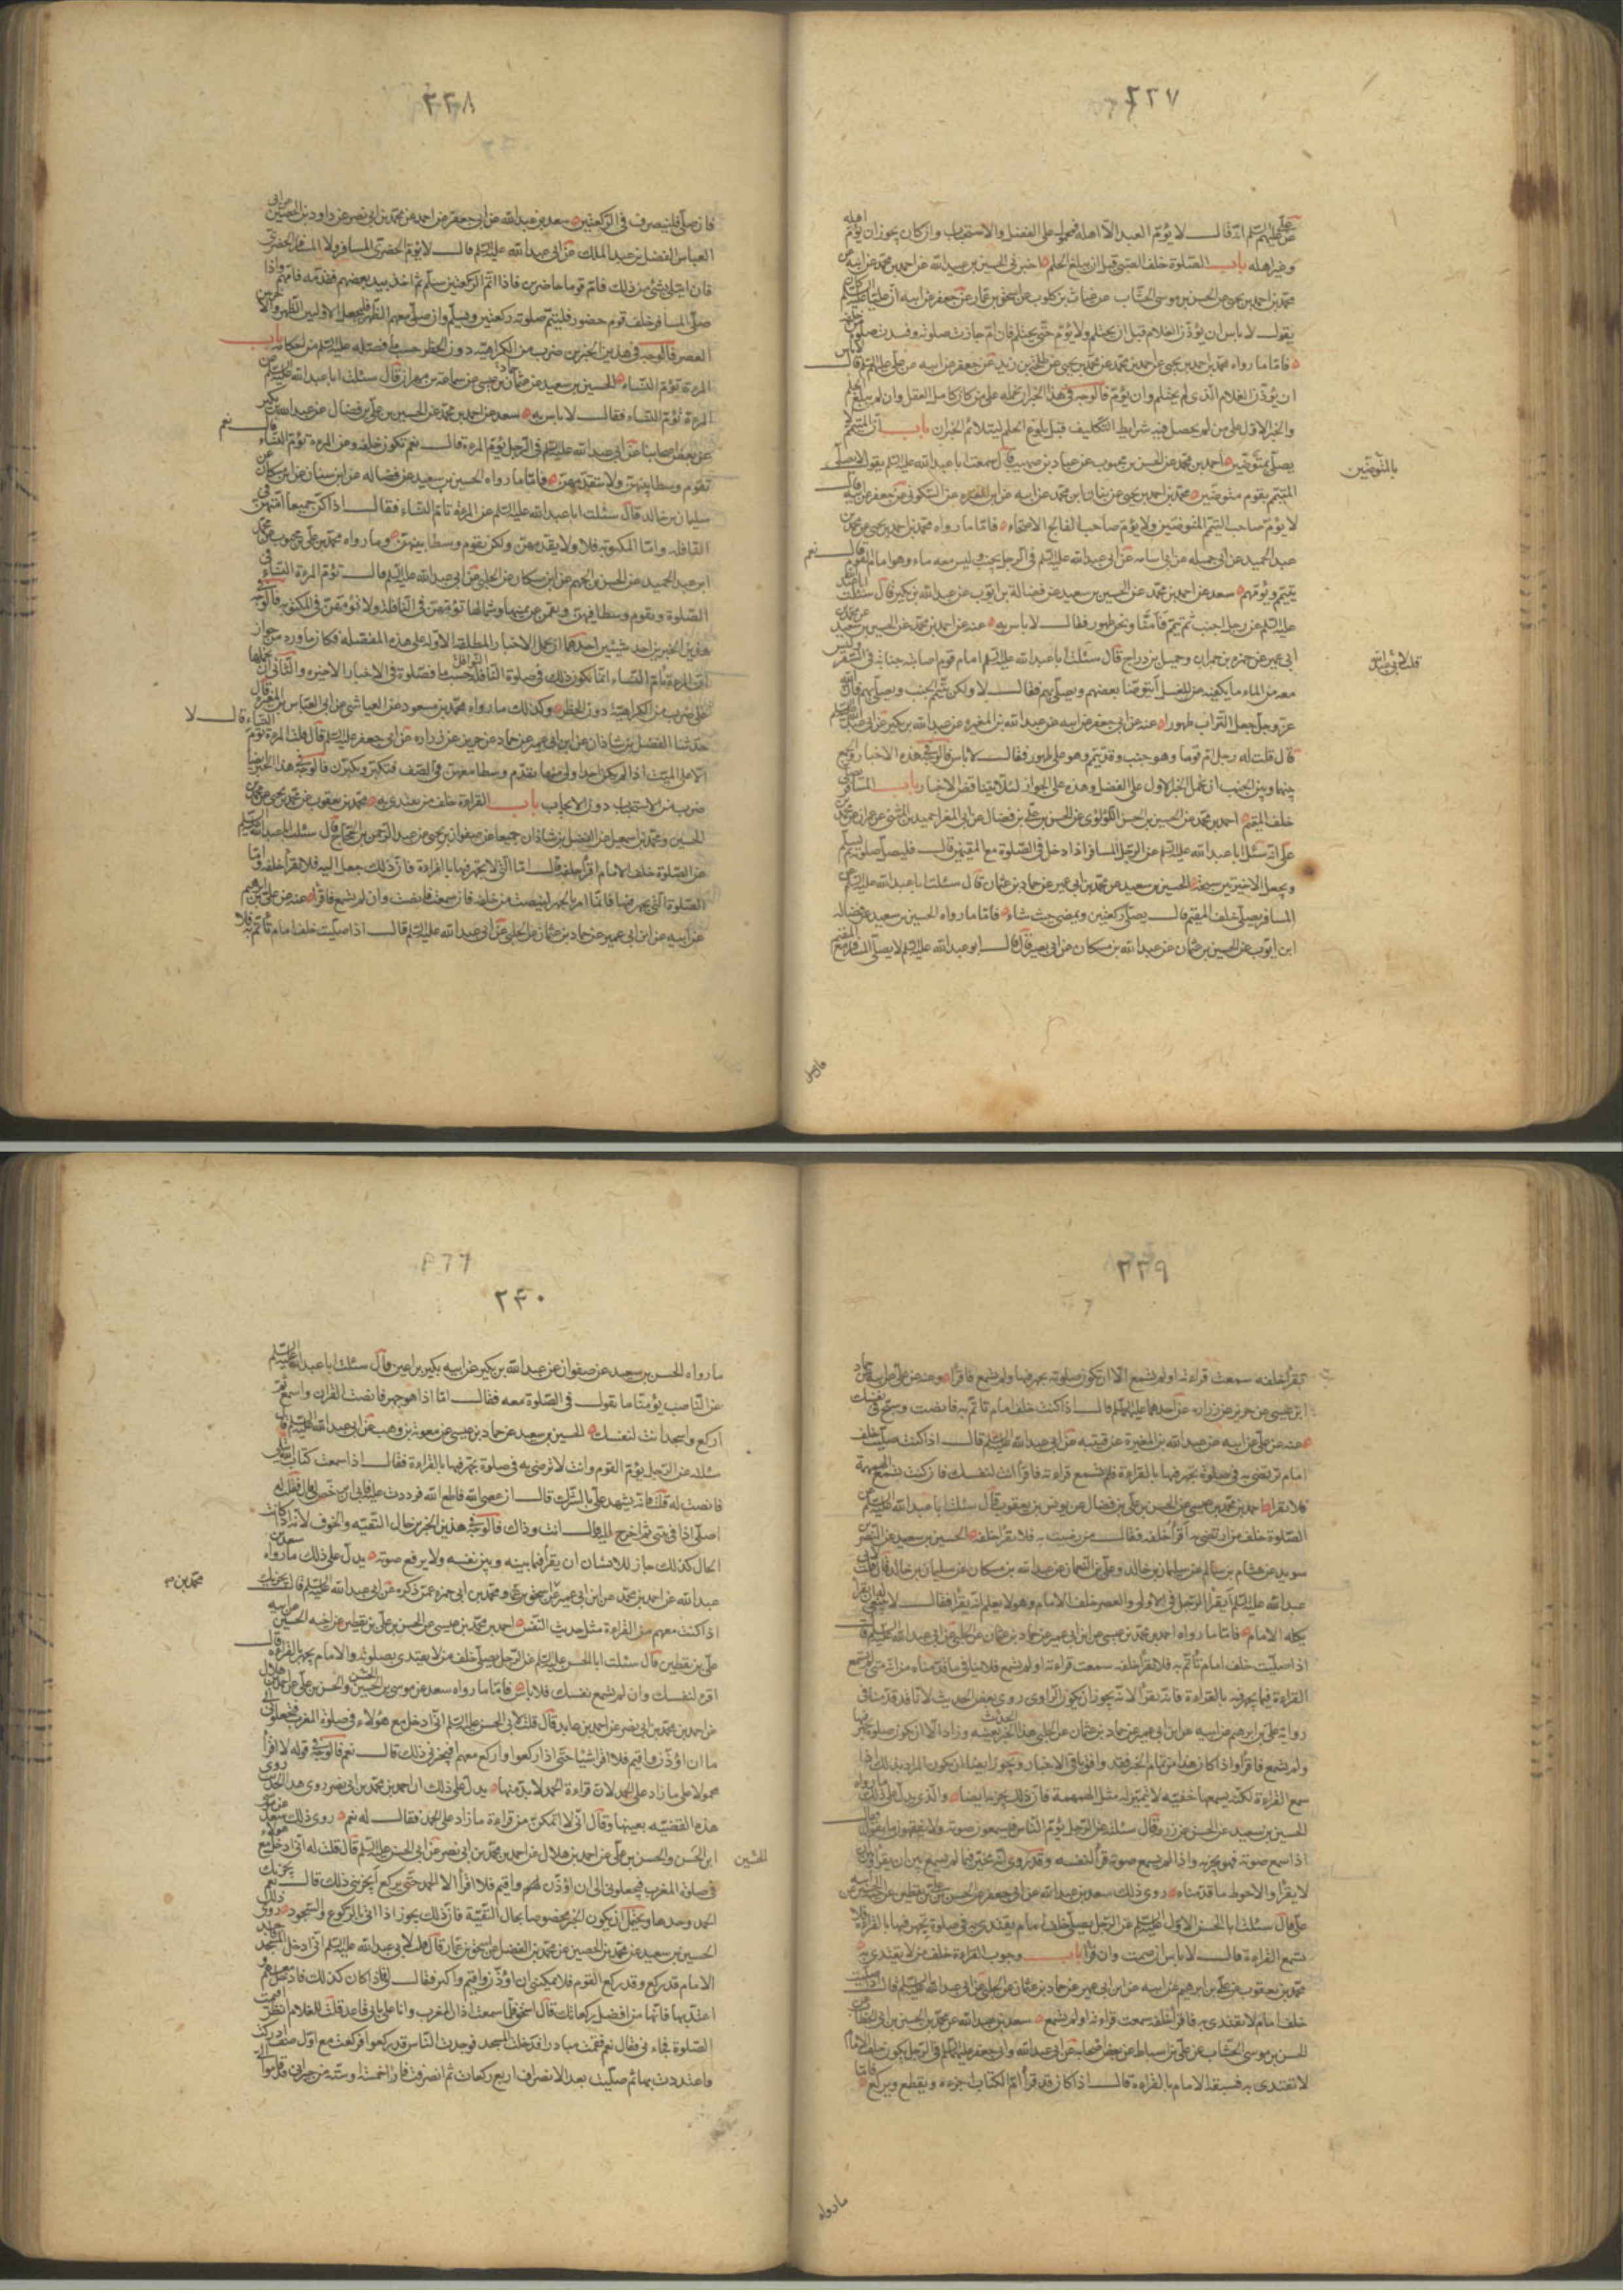 ٢٣٧
علي عليهم السلم انه قال لا يؤم العبد الا اهله فمحمول على الفضل والاستحباب وان كان يجوز ان يؤم اهله
وغير اهله باب الصلوة خلف الصبي قبل ان يبلغ الحلم اخبرني الحسين بن عبيد الله عن احمد بن محمد عن ابيه عن
محمد بن احمد بن يحيى عن الحسن بن موسى الخشاب عن غياث بن كلوب عن اسحق بن عمار عن جعفر عن ابيه ان عليا عليه السلم كان
يقول لا باس ان يؤذن الغلام قبل ان يحتلم ولا يؤم حتى يحتلم فان ام جازت صلوته وفسدت صلوة من خلفه
فاما ما رواه محمد بن احمد بن يحيى عن احمد بن محمد عن محمد بن يحيى عن طلحة بن زيد عن جعفر عن ابيه عن علي عليهم السلم قال لا باس
ان يؤذن الغلام الذي لم يحتلم وان يؤم فالوجه في هذا الخبر ان نحمله على من كان كامل العقل وان لم يبلغ الحلم
والخبر الاول على من لم يحصل فيه شرايط التكليف قبل بلوغ الحلم ليتلائم الخبران باب ان المتيمم لا
يصلي بمتوضين احمد بن محمد عن الحسن بن محبوب عن عباد بن صهيب قال سمعت ابا عبد الله عليه السلم يقول لا يصلي
المتيمم بقوم متوضين محمد بن احمد بن يحيى عن بنان ابن محمد عن ابيه عن ابن المغيرة عن السكوني عن جعفر عن ابيه قال
لا يؤم صاحب التيمم المتوضين ولا يؤم صاحب الفالج الاصحاء فاما ما رواه محمد بن احمد بن يحيى عن محمد بن
عبد الحميد عن ابي جميله عن ابي اسامه عن ابي عبد الله عليه السلم في الرجل يجنب وليس معه ماء وهو امام القوم قال نعم
يتيمم ويؤمهم سعد عن احمد بن محمد عن الحسين بن سعيد عن فضالة بن ايوب عن عبد الله بن بكير قال سئلت ابا عبد الله
عليه السلم عن رجل اجنب ثم تيمم فامنا ونحن طهور فقال لا باس به عنه عن احمد بن محمد عن الحسين بن سعيد عن محمد بن
ابي عمير عن حمزه بن حمران وجميل بن دراج قال سئلت ابا عبد الله عليه السلم امام قوم اصابته جنابة في السفر وليس
معه من الماء ما يكفيه عن للغسل أيتوضا بعضهم ويصلي بهم فقال لا ولكن يتيمم الجنب ويصلي بهم فان الله
عز وجل جعل التراب طهورا عنه عن ابي جعفر عن ابيه عن عبد الله بن المغيره عن عبد الله بن بكير عن ابي عبد الله عليه السلم
قال قلت له رجل ام قوما وهو جنب وقد تيمم وهو على طهور فقال لا باس فالوجه في هذه الاخبار الجمع
بينها وبين الجنب ان نحمل الخبر الاول على الفضل وهذه على الجواز لئلا تتناقض الاخبار باب المسافر يصلي
خلف المقيم احمد بن محمد عن الحسين بن الحسن اللؤلؤى عن الحسن بن علي بن فضال عن ابي المغرا حميد بن المثنى عن عمران عن محمد بن
علي انه سئل ابا عبد الله عليه السلم عن الرجل المسافر اذا دخل في الصلوة مع المقيمين قال فليصل صلوته ثم يسلم
ويجعل الاخيرتين سبحة الحسين بن سعيد عن محمد بن ابي عمير عن حماد بن عثمان قال سئلت ابا عبد الله عليه السلم عن
المسافر يصلي خلف المقيم قال يصلي ركعتين ويمضي حيث شاء فاما ما رواه الحسين بن سعيد عن فضاله
ابن ايوب عن الحسين بن عثمان عن عبد الله بن مسكان عن ابي بصير قال قال ابو عبد الله عليه السلم لا يصلي المسافر مع المقيم
بالمتوضين
فان صلى
٢٣٨
فان صلى فلينصرف في الركعتين سعد بن عبد الله عن ابي جعفر عن احمد عن محمد بن ابي نصر عن داود بن الحصين عن ابي
العباس الفضل بن عبد الملك عن ابي عبد الله عليه السلم قال لا يؤم الحضرى المسافر ولا المسافر الحضرى
فان ابتلى بشئ من ذلك فام قوما حاضرين فاذا اتم الركعتين سلم ثم اخذ بيد بعضهم فقدمه فامهم واذا
صلى المسافر خلف قوم حضور فليتم صلوته ركعتين ويسلم وان صلى معهم الظهر فليجعل الاولين الظهر والاخرتين
العصر فالوجه في هذين الخبرين ضرب من الكراهيه دون الحظر حسب ما فصله عليه السلم من احكامه باب
المرءة تؤم النساء الحسين بن سعيد عن عثمان بن عيسى عن سماعة بن مهران قال سئلت ابا عبد الله عليه السلم عن
المرءة تؤم النساء فقال لا باس به سعد عن احمد بن محمد عن الحسين بن علي بن فضال عن عبد الله بن بكير
عن بعض اصحابنا عن ابي عبد الله عليه السلم في الرجل يؤم المرءة قال نعم تكون خلفه وعن المرءة تؤم النساء قال نعم
تقوم وسطا بينهن ولا تتقدمهن فاما ما رواه الحسين بن سعيد عن فضاله عن ابن سنان عن ابن مسكان عن
سليمان بن خالد قال سئلت ابا عبد الله عليه السلم عن المرءة تام النساء فقال اذا كن جميعا امتهن في
النافله واما المكتوبه فلا ولا يقدمهن ولكن تقوم وسطا بينهن وما رواه محمد بن علي بن محبوب عن محمد
ابن عبد الحميد عن الحسن بن الجهم عن ابن مسكان عن الحلبي عن ابي عبد الله عليه السلم قال تؤم المرءة النساء في
الصلوة وتقوم وسطا فيهن ويقمن عن يمينها وشمالها تؤمهن في النافلة ولا تؤمهن في المكتوبه فالوجه
في هذين الخبرين احد شيئين احدهما ان نحمل الاخبار المطلقه الاوله على هذه المفصله فكان ما ورد من جواز
ان المرءة تام النساء انما يكون ذلك في صلوة النافلة حسب ما فصلوة في الاخبار الاخيره والثاني ان نحملها
على ضرب من الكراهية دون الحظر وكذلك ما رواه محمد بن مسعود عن العياشي عن ابي العباس بن المغيره قال
حدثنا الفضل بن شاذان عن ابن ابي عمير عن حماد عن حريز عن زراره عن ابي جعفر عليه السلم قال قلت المرءة تؤم النساء قال لا
الا على الميت اذا لم يكن احد اولى منها تقدم وسطا معهن في الصف فتكبر ويكبرن فالوجه في هذا الخبر ايضا
ضرب من الاستحباب دون الايجاب باب القراءة خلف من يقتدى به محمد بن يعقوب عن محمد بن يحيى عن محمد بن
الحسين ومحمد بن اسمعيل عن الفضل بن شاذان جميعا عن صفوان بن يحيى عن عبد الرحمن بن الحجاج قال سئلت ابا عبد الله عليه السلم
عن الصلوة خلف الامام اقرأ خلفه قال اما التي لا يجهر فيها بالقراءة فان ذلك جعل اليه فلا تقرأ خلفه واما
الصلوة التي يجهر فيها فانما امر بالجهر لينصت من خلفه فان سمعت فانصت وان لم تسمع فاقرأ عنه عن علي بن ابرهيم
عن ابيه عن ابن ابي عمير عن حماد بن عثمان عن الحلبي عن ابي عبد الله عليه السلم قال اذا صليت خلف امام تأتم به فلا
٢٣٩
تقرأ خلفه سمعت قراءته او لم تسمع الا ان تكون صلوته يجهر فيها ولم تسمع فاقرأ وعنه عن علي عن ابيه عن حماد
ابن عيسى عن حريز عن زراره عن احدهما عليهما السلم قال اذا كنت خلف امام تأتم به فانصت وسبح في نفسك
عنه عن علي عن ابيه عن عبد الله بن المغيرة عن قتيبه عن ابي عبد الله عليه السلم قال اذا كنت صليت خلف
امام ترتضي به في صلوة يجهر فيها بالقراءة فلم تسمع قراءته فاقرأ انت لنفسك فان كنت تسمع الهمهمة
فلا تقرا احمد بن محمد بن عيسى عن الحسن بن علي بن فضال عن يونس بن يعقوب قال سئلت ابا عبد الله عليه السلم عن
الصلوة خلف من ارتضى به أقرأ خلفه فقال من رضيت به فلا تقرأ خلفه الحسين بن سعيد عن النضر بن
سويد عن هشام بن سالم عن سليمان بن خالد وعلي بن النعمان عن عبد الله بن مسكان عن سليمان بن خالد قال قلت لابي
عبد الله عليه السلم أيقرأ الرجل في الاولى والعصر خلف الامام وهو لا يعلم انه يقرأ فقال لا ينبغي له ان يقرأ
يكله الامام فاما ما رواه احمد بن محمد بن عيسى عن ابن ابي عمير عن حماد بن عثمان عن الحلبي عن ابي عبد الله عليه السلم قال
اذا صليت خلف امام تأتم به فلا تقرأ خلفه سمعت قراءته او لم تسمع فلا ينافي ما قدمناه من انه متى لم تسمع
القراءة فيما يجهر فيه بالقراءة فانه يقرأ لانه يجوز ان يكون الراوى روى بعض الحديث لانا قد قدمنا في
رواية علي بن ابرهيم عن ابيه عن ابن ابي عمير عن حماد بن عثمان عن الحلبي هذا الحديث بعينه وزاد الا ان تكون صلوة يجهر فيها
ولم تسمع فاقرأ واذا كان هذا من تمام الخبر فقد وافق باقي الاخبار ويجوز ايضا ان يكون المراد بذلك اذا
سمع القراءة لكنه يسمعها خفيه لا تتميز له مثل الهمهمة فان ذلك يجزيه ايضا والذي يدل على ذلك ما رواه
الحسين بن سعيد عن الحسن عن زرعه قال سئلته عن الرجل يؤم الناس فيسمعون صوته ولا يفقهون ما يقول فقال
اذا سمع صوته فهو يجزيه واذا لم يسمع صوته قرأ لنفسه وقد روى انه مخير فيما لم يسمع بين ان يقرأ وبين ان
لا يقرأ والاحوط ما قدمناه روى ذلك سعد بن عبد الله عن ابي جعفر عن الحسن بن علي بن يقطين عن اخيه الحسين عن ابيه
علي قال سئلت ابا الحسن الاول عليه السلم عن الرجل يصلي خلف امام يقتدى به في صلوة يجهر فيها بالقراءة فلا
تسمع القراءة قال لا باس ان صمت وان قرأ باب وجوب القراءة خلف من لا يقتدى به
محمد بن يعقوب عن علي بن ابرهيم عن ابيه عن ابن ابي عمير عن حماد بن عثمان عن الحلبي عن ابي عبد الله عليه السلم قال اذا صليت
خلف امام لا تقتدى به فاقرأ خلفه سمعت قراءته او لم تسمع سعد بن عبد الله عن محمد بن الحسين بن ابي الخطاب عن
الحسن بن موسى الخشاب عن علي بن اسباط عن بعض اصحابه عن ابي عبد الله وابي جعفر عليهما السلم في الرجل يكون خلف الامام
لا تقتدى به فيسبقه الامام بالقراءة قال اذا كان قد قرأ ام الكتاب اجزءه ويقطع ويركع فاما
ما رواه
٢٤٠
ما رواه الحسن بن سعيد عن صفوان عن عبد الله بن بكير عن ابيه بكير بن اعين قال سئلت ابا عبد الله عليه السلم
عن الناصب يؤمنا ما تقول في الصلوة معه فقال اما اذا هو جهر فانصت القران واسمع ثم
اركع واسجد انت لنفسك الحسين بن سعيد عن حماد بن عيسى عن معوية بن وهب عن ابي عبد الله عليه السلم قال
سئلته عن الرجل يؤم القوم وانت لا ترضى به في صلوة يجهر فيها بالقراءة فقال اذا سمعت كتاب الله يتلى
فانصت له قلت فانه يشهد علي بالشرك قال ان عصى الله فاطع الله فرددت عليه فابى ان يرخص لي قال فقلت له
اصلي اذا في بيتي ثم اخرج اليه قال انت وذاك فالوجه في هذين الخبرين حال التقيه والخوف لانه اذا كانت
الحال كذلك جاز للانسان ان يقرأ فيما بينه وبين نفسه ولا يرفع صوته يدل على ذلك ما رواه سعد بن
عبد الله عن احمد بن محمد عن ابن ابي عمير عن اسحق ومحمد بن ابي حمزه عمن ذكره عن ابي عبد الله عليه السلم قال يجزيك
اذا كنت معهم من القراءة مثل حديث النفس احمد بن محمد بن عيسى عن الحسن بن علي بن يقطين عن اخيه الحسين عن ابيه
علي بن يقطين قال سئلت ابا الحسن عليه السلم عن الرجل يصلي خلف من لا يقتدى بصلوته والامام يجهر بالقراءة قال
اقرء لنفسك وان لم تسمع نفسك فلا باس فاما ما رواه سعد عن موسى بن الحسين والحسن بن علي عن احمد بن هلال
عن احمد بن محمد بن ابي نصر عن احمد بن عايد قال قلت لابي الحسن عليه السلم اني ادخل مع هؤلاء في صلوة المغرب فيعجلوني الى
ما ان اؤذن واقيم فلا اقرا شيئا حتى اذا ركعوا واركع معهم افيجزي ذلك قال نعم فالوجه في قوله لا اقرأ
محمولا على ما زاد على الحمد لان قراءة الحمد لا بد منها يدل على ذلك ان احمد بن محمد بن ابي نصر روى هذا الحديث
هذه القضيه بعينها وقال اني لا اتمكن من قراءة ما زاد على الحمد فقال له نعم روى ذلك سعد عن موسى
ابن الحسن والحسن بن علي عن احمد بن هلال عن احمد بن محمد بن ابي نصر عن ابي الحسن عليه السلم قال قلت له اني ادخل مع هؤلاء
في صلوة المغرب فيعجلوني الى ان اؤذن واقيم فلا اقرأ الا الحمد حتى يركع أيجزيني ذلك قال نعم يجزيك
الحمد وحدها ويحتمل ان يكون الخبر مخصوصا بحال التقية فان ذلك يجوز اذا اتى بالركوع والسجود روى ذلك
الحسين بن سعيد عن محمد بن الحصين عن محمد بن الفضيل عن اسحق بن عمار قال قلت لابي عبد الله عليه السلم اني ادخل المسجد فاجد
الامام قد ركع وقد ركع القوم فلا يمكنني ان اؤذن واقيم واكبر فقال لي فاذا كان كذلك فادخل معهم
اعتد بها فانها من افضل ركعاتك قال اسحق فلما سمعت اذان المغرب وانا على بابي قاعد قلت للغلام انظر اقيمت
الصلوة فجاءني فقال نعم فقمت مبادرا فدخلت المسجد فوجدت الناس قد ركعوا فركعت مع اول صف ادركت
واعتددت بها ثم صليت بعد الانصراف اربع ركعات ثم انصرفت فاذا خمسة او ستة من جيراني قد قاموا الي
محمد بن صه
الحسين